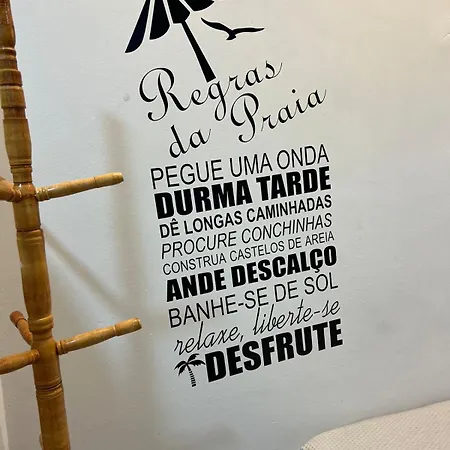 Regras
da Praia
PEGUE UMA ONDA
DURMA TARDE
DÊ LONGAS CAMINHADAS
PROCURE CONCHINHAS
CONSTRUA CASTELOS DE AREIA
ANDE DESCALÇO
BANHE-SE DE SOL
relaxe, liberte-se
DESFRUTE